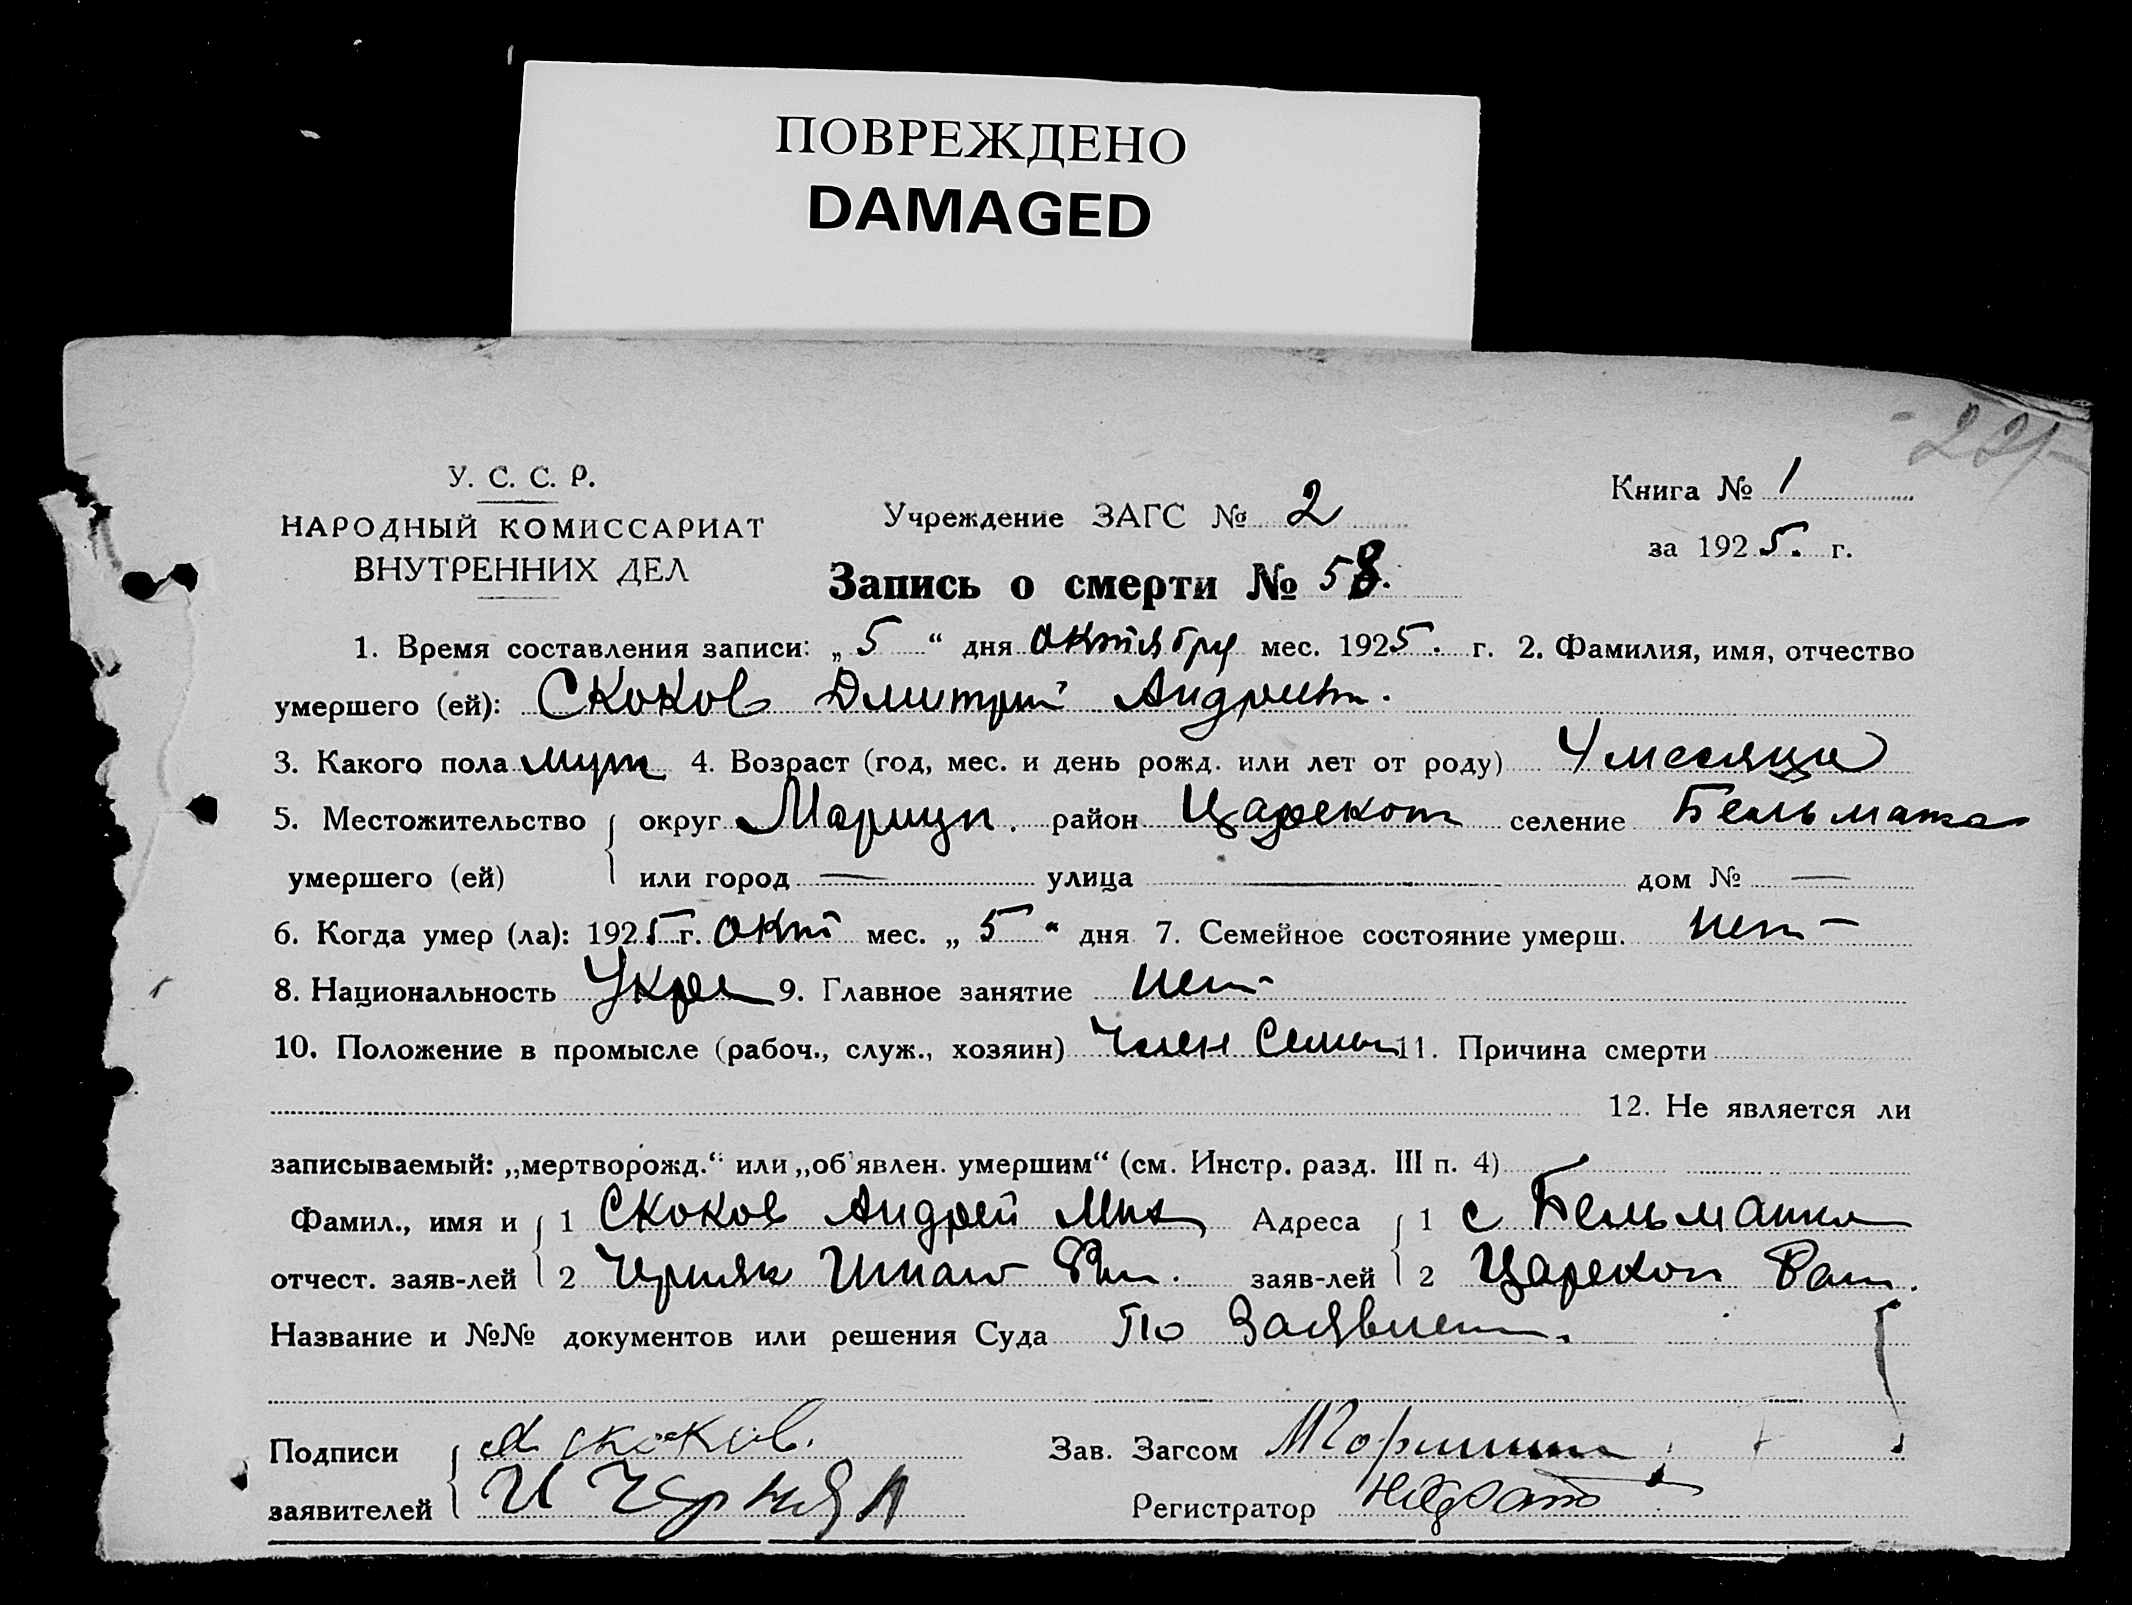 ПОВРЕЖДЕНО
DAMAGED
У. С. С. Р.
НАРОДНЫЙ КОМИССАРИАТ
ВНУТРЕННИХ ДЕЛ
Учреждение ЗАГС № 2
Книга № 1
за 1925. г.
Запись о смерти № 58.
1. Время составления записи: „ 5 “ дня октября мес. 1925. г. 2. Фамилия, имя, отчество
умершего (ей): Скоков Дмитрий
3. Какого пола муж 4. Возраст (год, мес. и день рожд. или лет от роду) 4 месяца
5. Местожительство округ Мариуп. район Царекон селение Бельманка
умершего (ей) или город — улица — дом № —
6. Когда умер (ла): 1925 г. окт мес. „ 5 “ дня 7. Семейное состояние умерш. нет —
8. Национальность Укра 9. Главное занятие нет
10. Положение в промысле (рабоч., служ., хозяин) Член Семьи 11. Причина смерти
12. Не является ли
записываемый: „мертворожд.“ или „об'явлен. умершим“ (см. Инстр. разд. III п. 4)
Фамил., имя и 1 Скоков Андрей Мих Адреса 1 с Бельманка
отчест. заяв-лей 2 заяв-лей 2 Царекон
Название и №№ документов или решения Суда По
Подписи А Скоков. Зав. Загсом
заявителей И Регистратор